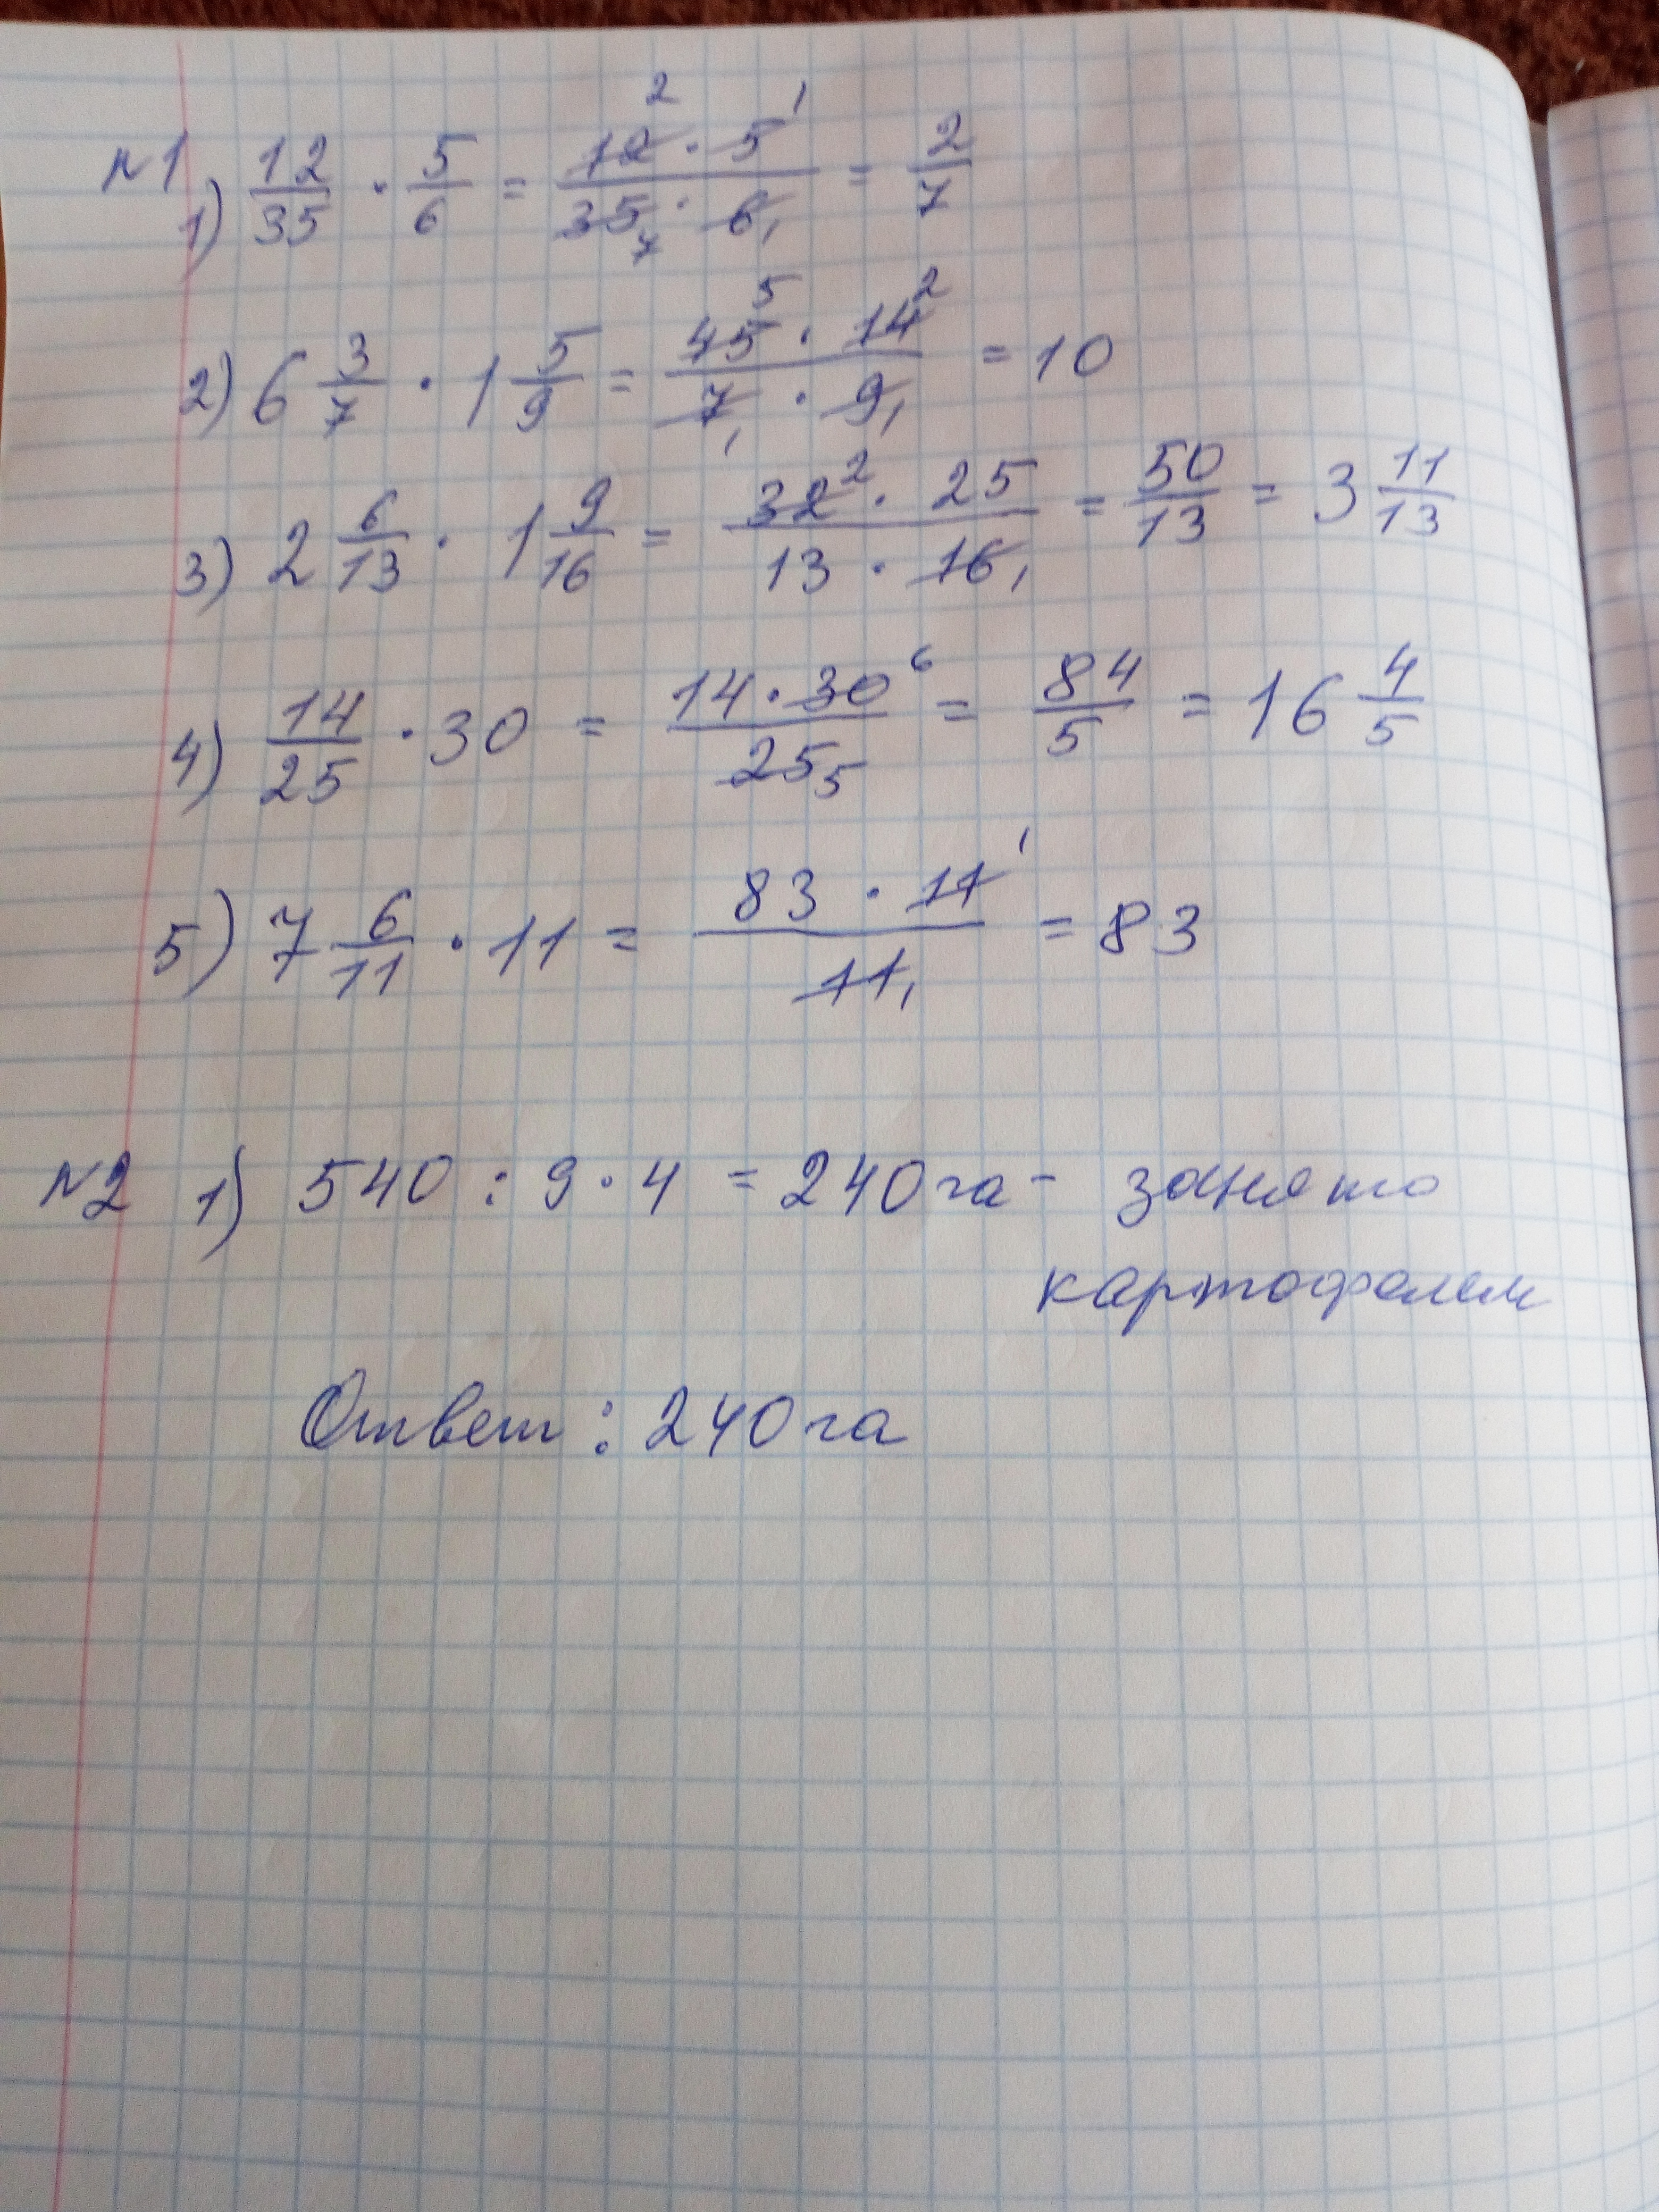 №1
1) 12/35 · 5/6 = 12² · 5¹ / 35₇ · 6₁ = 2/7
2) 6 3/7 · 1 5/9 = 45⁵ · 14² / 7₁ · 9₁ = 10
3) 2 6/13 · 1 9/16 = 32² · 25 / 13 · 16₁ = 50/13 = 3 11/13
4) 14/25 · 30 = 14 · 30⁶ / 25₅ = 84/5 = 16 4/5
5) 7 6/11 · 11 = 83 · 11¹ / 11₁ = 83
№2 1) 540 : 9 · 4 = 240 га - занято
картофелем
Ответ: 240 га